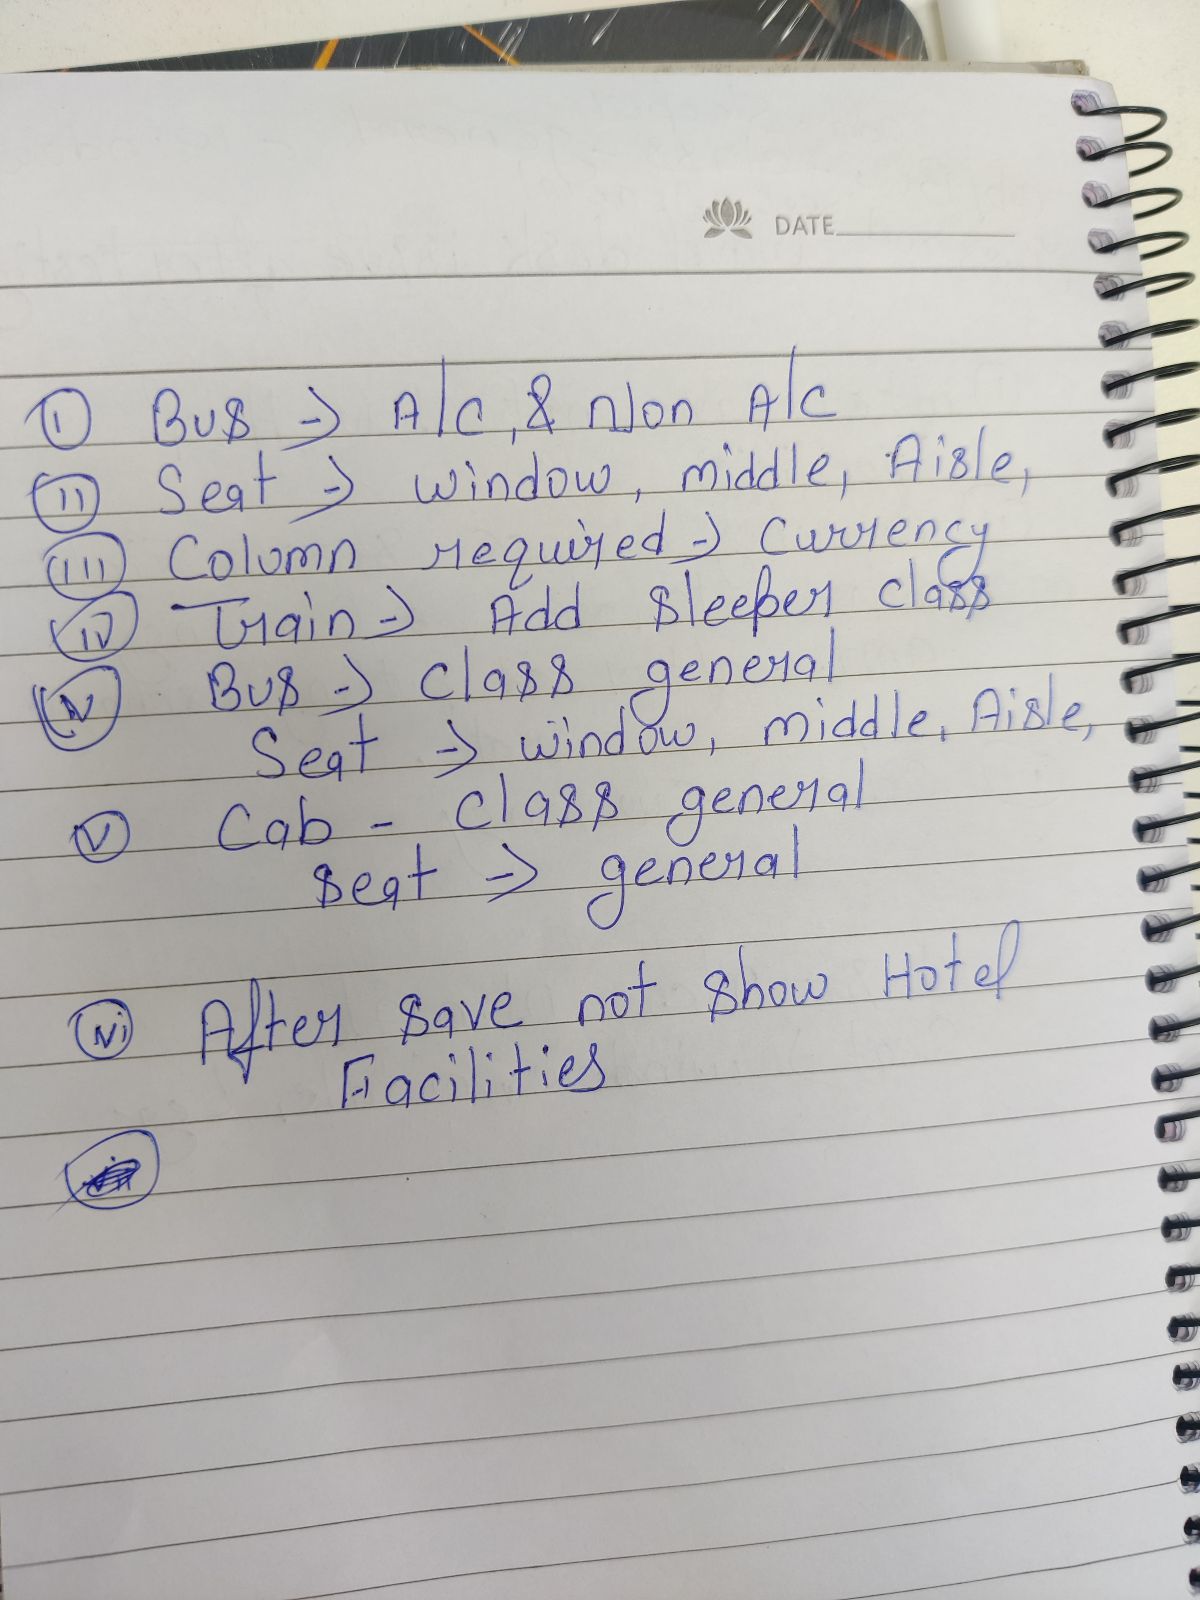 DATE
(I) Bus → A/c, & Non A/c
(II) Seat → window, middle, Aisle,
(III) Column required → Currency
(IV) Train → Add Sleeper class
(V) Bus → class general
Seat → window, middle, Aisle,
(V) Cab - class general
Seat → general
(Vi) After save not show Hotel
Facilities